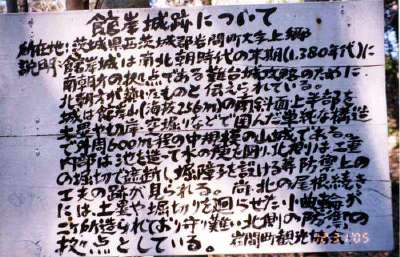 館岸城跡について
所在地:茨城県西茨城郡岩間町大字上郷
説明:館岸城は南北朝時代の末期(1.380年代)に
南朝方の拠点である難台城攻略のために
北朝方が築いたものと伝えられている。
城は館岸山(海抜256m)の南斜面上半部を
土塁や切岸、空堀などで囲んだ単純な構造
で外周600m程の中規模の山城である。
内部は池を造って水の便を図り、北側は二重
の堀切で遮断し城隍を設ける等防禦上の
工夫の跡が見られる。尚、北の尾根続き
には、土塁や堀切りを廻らせた小曲輪が
二ヶ所造られており守り難い北側の防禦の
拠点としている。 岩間町観光協会